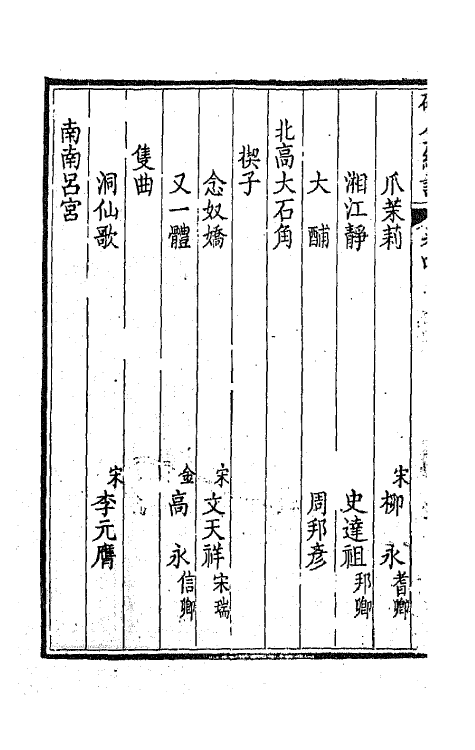 爪茉莉 宋柳永耆卿
湘江靜 史達祖邦卿
大酺 周邦彦
北高大石角
楔子
念奴嬌 宋文天祥宋瑞
又一體 金高永信卿
隻曲
洞仙歌 宋李元膺
南南呂宮